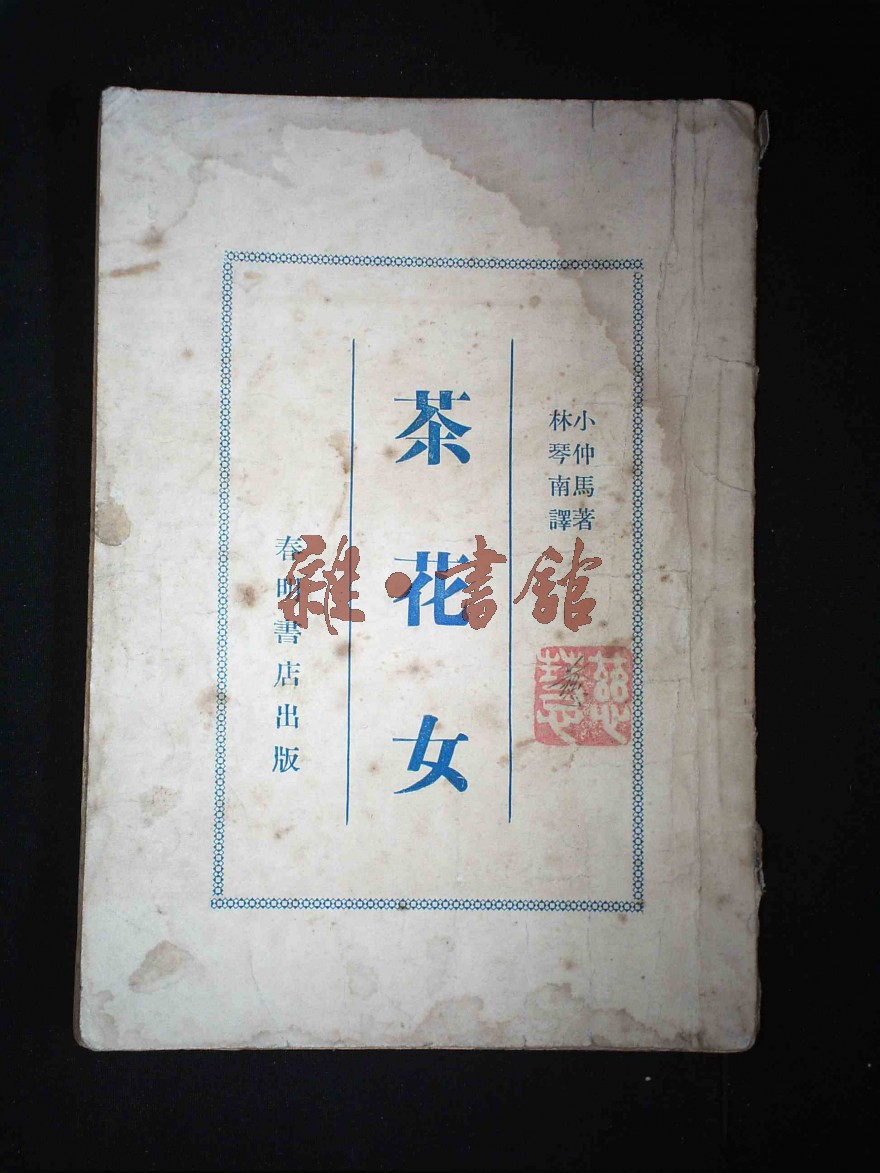 小仲馬著
林琴南譯
茶花女
春明書店出版
雜·書館